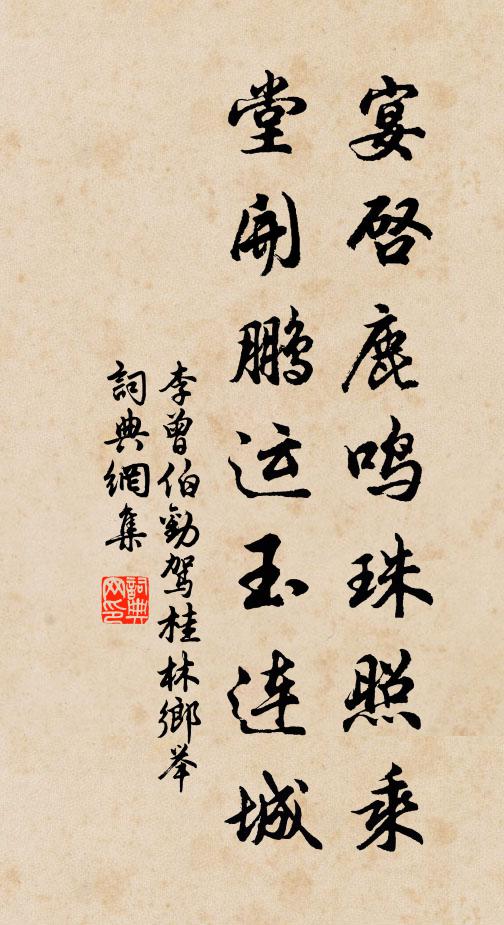 宴启鹿鸣珠照乘
堂开鹏运玉连城
李曾伯勸驾桂林鄉举
詞典網集
詞典
网印